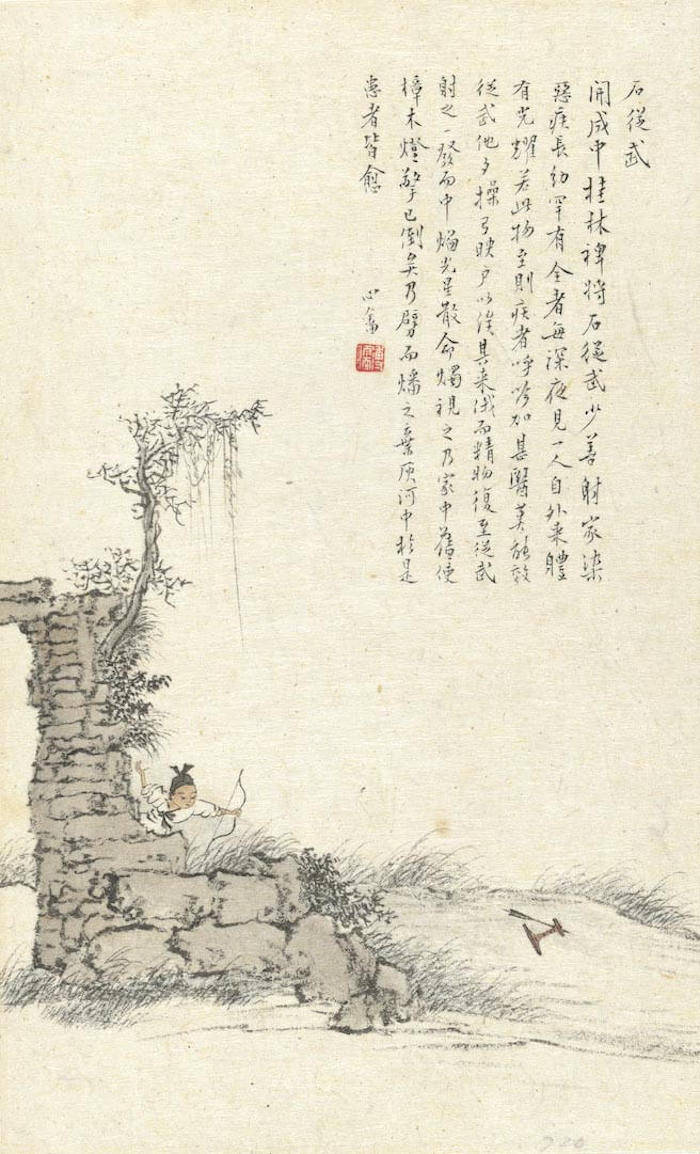 石從武
開成中桂林裨將石從武少善射家染
惡疾長幼罕有全者每深夜見一人自外來體
有光耀若此物至則疾者呼吟加甚醫莫能效
從武他夕操弓映戶以俟其來俄而精物復至從武
射之一發而中焰光星散命燭視之乃家中舊使
樟木燈擎已倒矣乃劈而燔之棄灰河中於是
患者皆愈
心畬